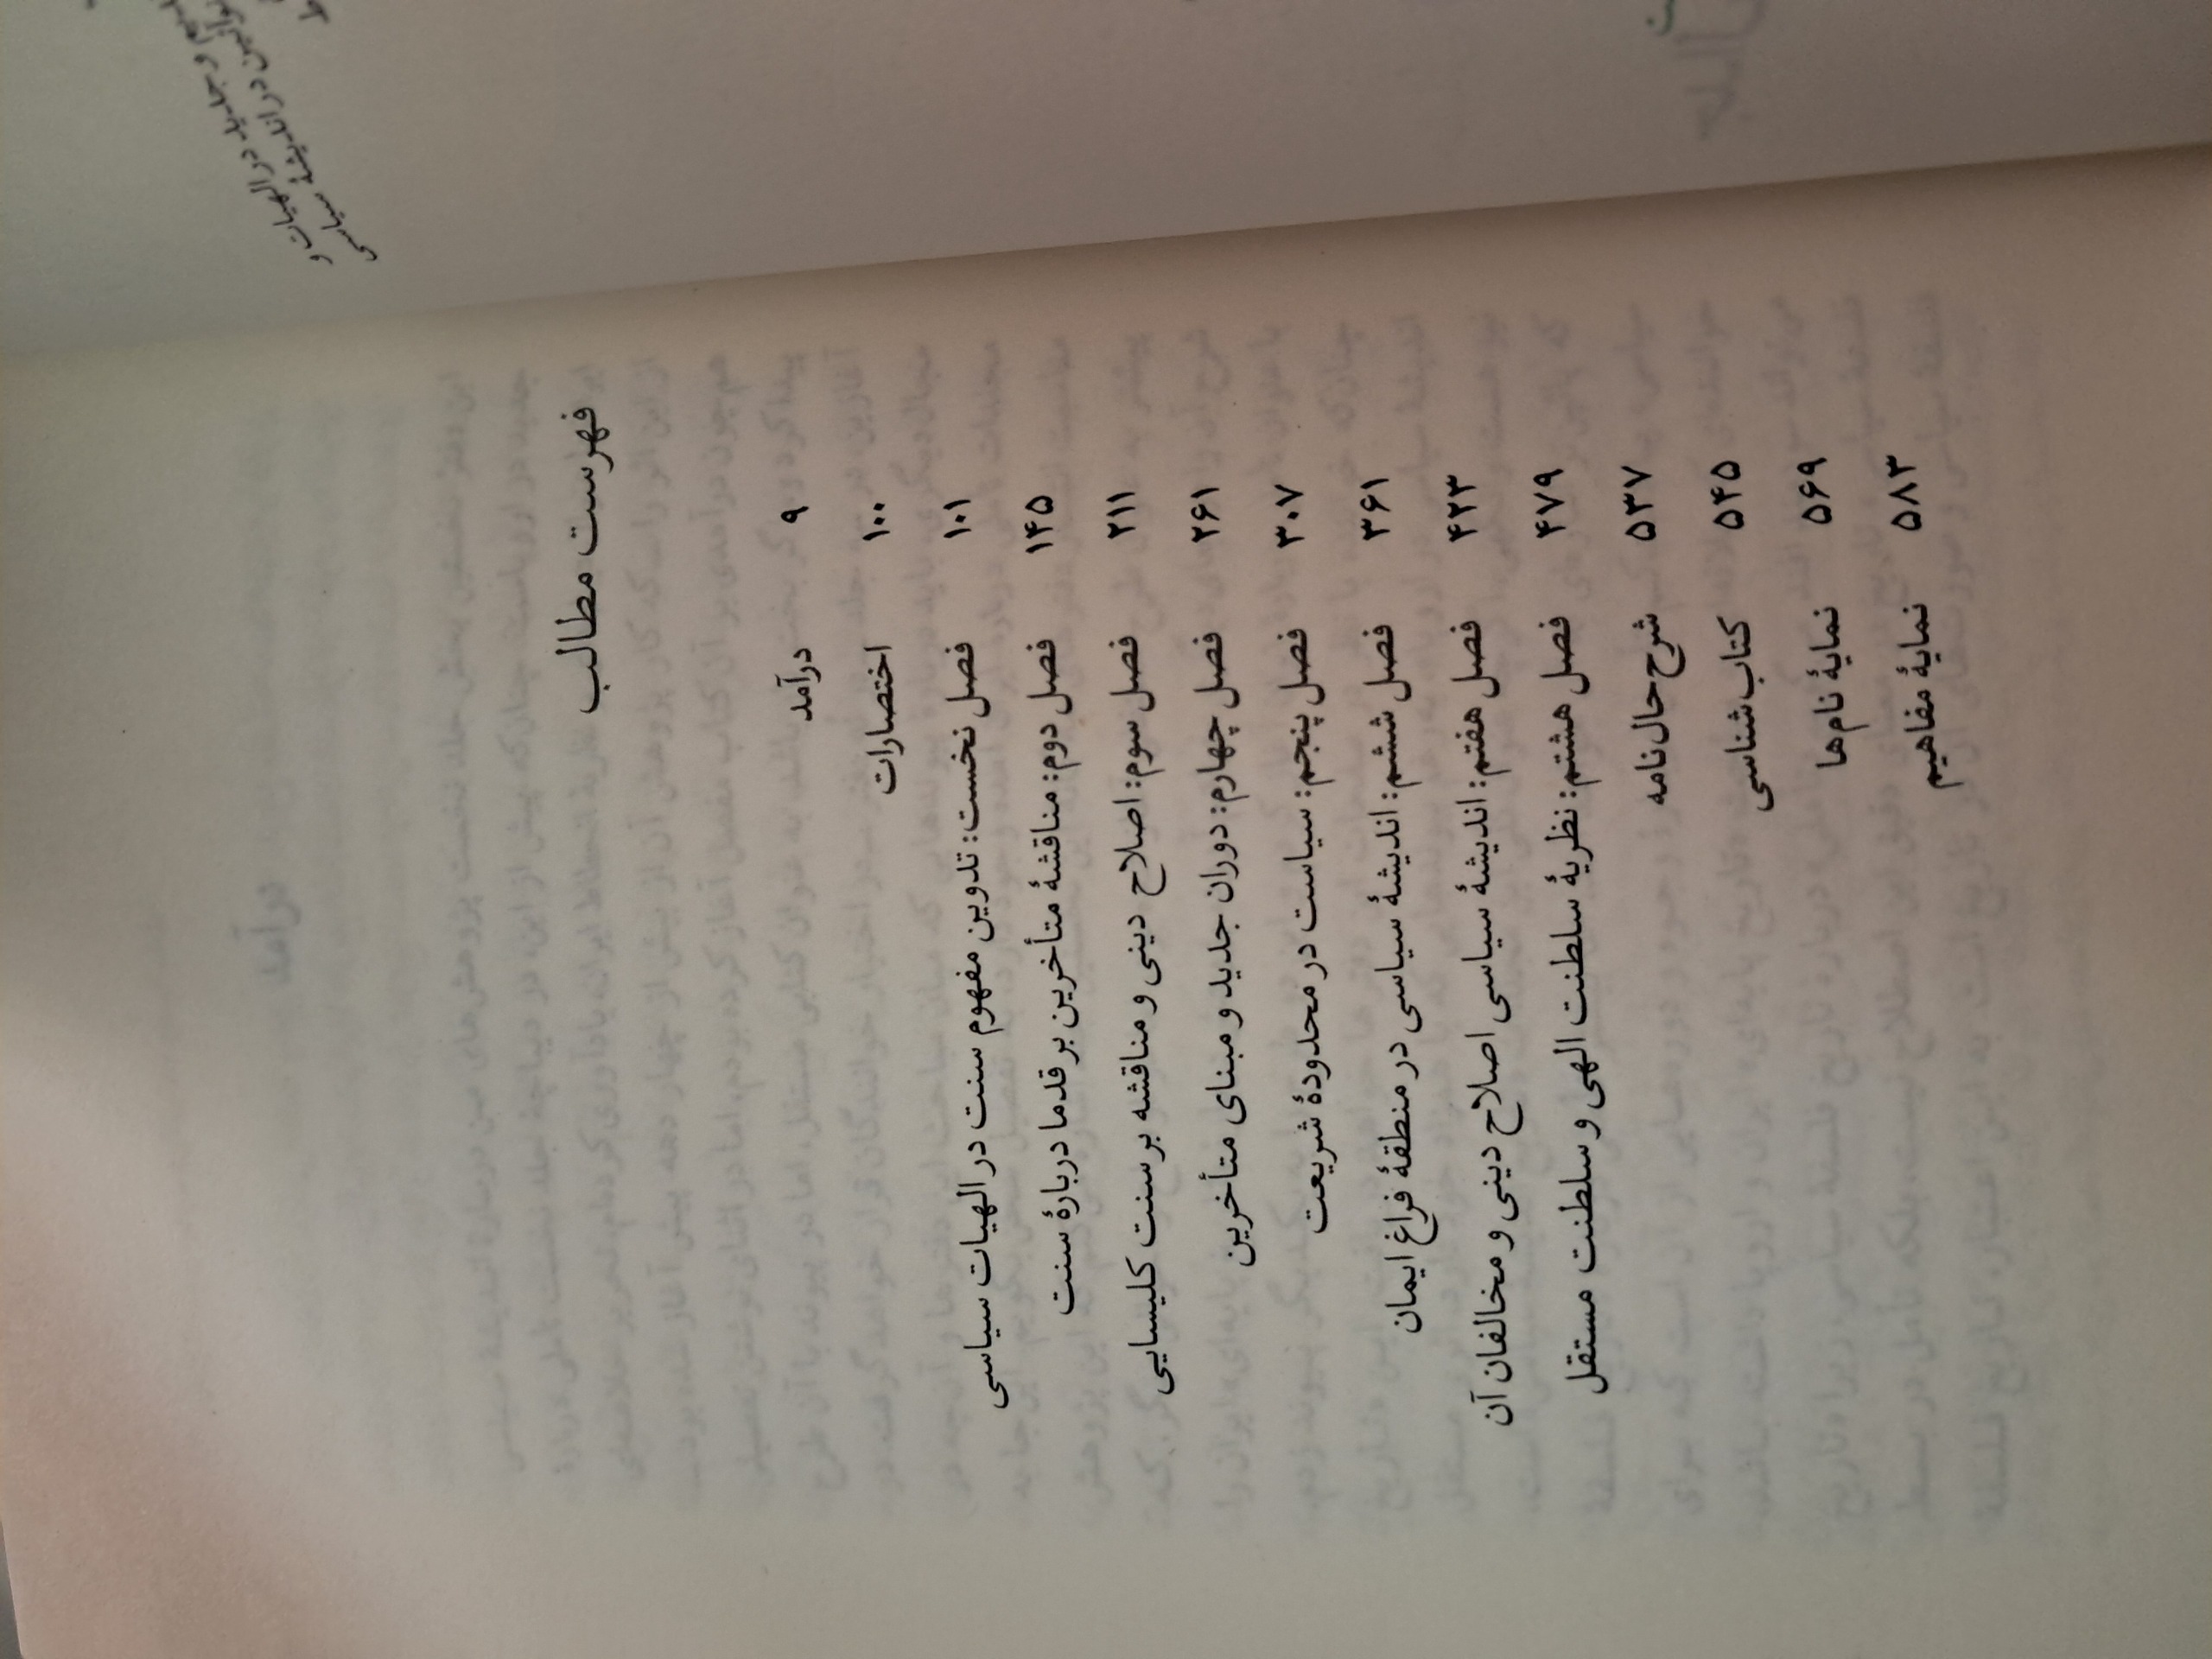 فهرست مطالب
درآمد ۹
اختصارات ۱۰۰
فصل نخست: تدوین مفهوم سنت در الهیات سیاسی ۱۰۱
فصل دوم: مناقشهٔ متأخرین بر قدما دربارهٔ سنت ۱۴۵
فصل سوم: اصلاح دینی و مناقشه بر سنت کلیسایی ۲۱۱
فصل چهارم: دوران جدید و مبنای متأخرین ۲۶۱
فصل پنجم: سیاست در محدودهٔ شریعت ۳۰۷
فصل ششم: اندیشهٔ سیاسی در منطقهٔ فراغ ایمان ۳۶۱
فصل هفتم: اندیشهٔ سیاسی اصلاح دینی و مخالفان آن ۴۲۳
فصل هشتم: نظریهٔ سلطنت الهی و سلطنت مستقل ۴۷۹
شرح‌حال‌نامه ۵۳۷
کتاب‌شناسی ۵۴۵
نمایهٔ نام‌ها ۵۶۹
نمایهٔ مفاهیم ۵۸۳
و جدید در الهیات و
در اندیشهٔ سیاسی